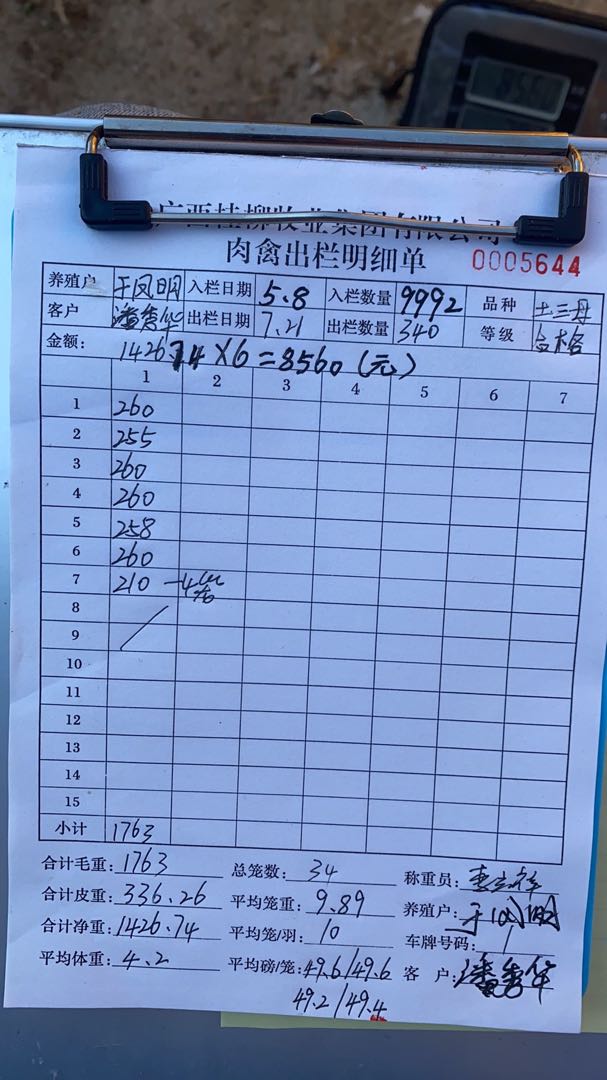 广西桂柳牧业集团有限公司
肉禽出栏明细单 0005644
养殖户 入栏日期 5.8 入栏数量 9992 品种 土三丹
客户 潘秀华 出栏日期 7.21 出栏数量 340 等级 合格
金额: 1426.74×6=8560(元)
1 2 3 4 5 6 7
1 260
2 255
3 260
4 260
5 258
6 260
7 210 -4
8
9
10
11
12
13
14
15
小计 1763
合计毛重: 1763 总笼数: 34 称重员:
合计皮重: 336.26 平均笼重: 9.89 养殖户:
合计净重: 1426.74 平均笼/羽: 10 车牌号码: /
平均体重: 4.2 平均磅/笼: 49.6/49.6 客户: 潘秀华
49.2/49.4